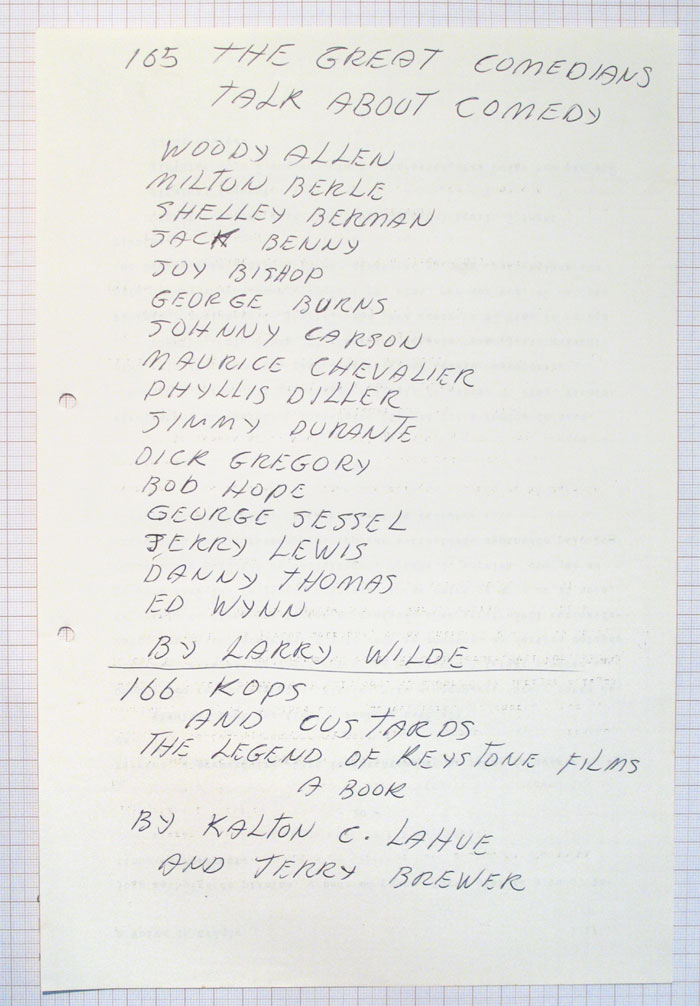 165 THE GREAT COMEDIANS
TALK ABOUT COMEDY
WOODY ALLEN
MILTON BERLE
SHELLEY BERMAN
JACK BENNY
JOY BISHOP
GEORGE BURNS
JOHNNY CARSON
MAURICE CHEVALIER
PHYLLIS DILLER
JIMMY DURANTE
DICK GREGORY
BOB HOPE
GEORGE JESSEL
JERRY LEWIS
DANNY THOMAS
ED WYNN
BY LARRY WILDE
166 KOPS
AND CUSTARDS
THE LEGEND OF KEYSTONE FILMS
A BOOK
BY KALTON C. LAHUE
AND TERRY BREWER